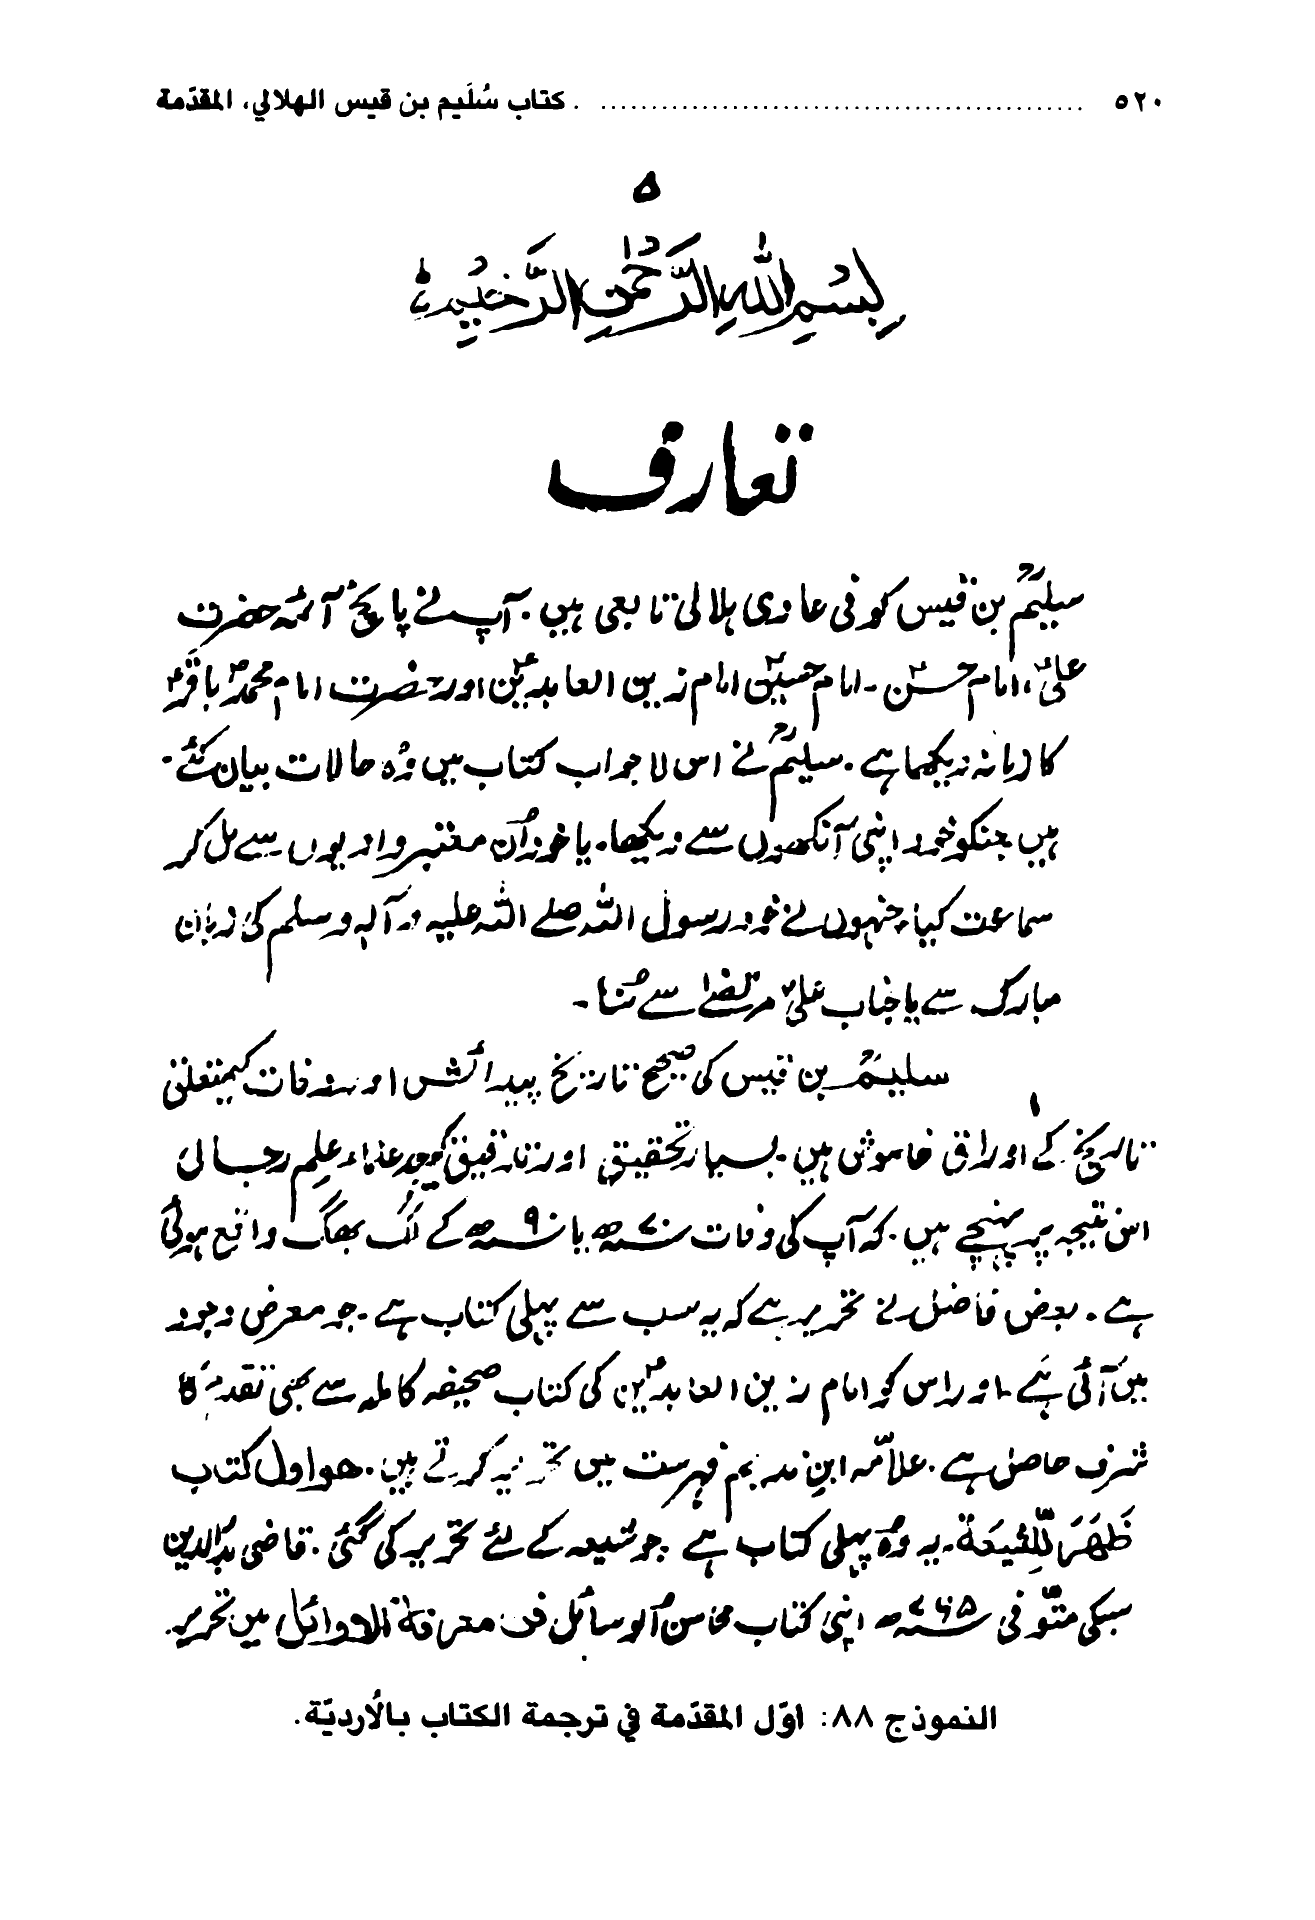 ٥٢٠ ........................................ كتاب سُلَيم بن قيس الهلالي، المقدّمة
٥
بِسْمِ اللّٰهِ الرَّحْمٰنِ الرَّحِيْمِ
تعارف
سیلیمؒ بن قیس کوفی عامری ہلالی تابعی ہیں۔ آپ نے پانچ آئمہ حضرت
علیؑ، امام حسنؑ۔ امام حسینؑ امام زین العابدینؑ اور حضرت امام محمد باقرؑ
کا زمانہ دیکھا ہے۔ سیلیمؒ نے اس لاجواب کتاب میں وُہ حالات بیان کئے
ہیں جنکو خود اپنی آنکھوں سے دیکھا۔ یا خود اُن معتبر راویوں سے مل کر
سماعت کیا، جنہوں نے خود رسول اللّٰہ صلے اللّٰہ علیہ وآلہٖ وسلم کی زبان
مبارک سے یا جناب علیؑ مرتضےٰ سے سُنا۔
سلیمؒ بن قیس کی صحیح تاریخ پیدائش اور وفات کیمتعلق
تاریخ کے اوراق خاموش ہیں۔ بسیار تحقیق اور تدقیق کے بعد علماء علم رجال
اس نتیجہ پر پہنچے ہیں۔ کہ آپ کی وفات سنہ ۷۰ھ یا سنہ ۹۰ھ کے لگ بھگ واقع ہوئی
ہے۔ بعض فاضل نے تحریر ہے کہ یہ سب سے پہلی کتاب ہے۔ جو معرض وجود
میں آئی ہے۔ اور اس کو امام زین العابدینؑ کی کتاب صحیفہ کاملہ سے بھی تقدم کا
شرف حاصل ہے۔ علاّمہ ابنِ ندیم فہرست میں تحریر کرتے ہیں۔ ھو اول کتاب
ظَهَرَ لِلشِّيعَة۔ یہ وُہ پہلی کتاب ہے جو شیعہ کے لئے تحریر کی گئی۔ قاضی بدرالدین
سبکی متوّفی سنہ ۷۶۵ھ اپنی کتاب محاسن الوسائل فی معرفۃ الاوائل میں تحریر
النموذج ٨٨: اوّل المقدّمة في ترجمة الكتاب بالأُرديّة.